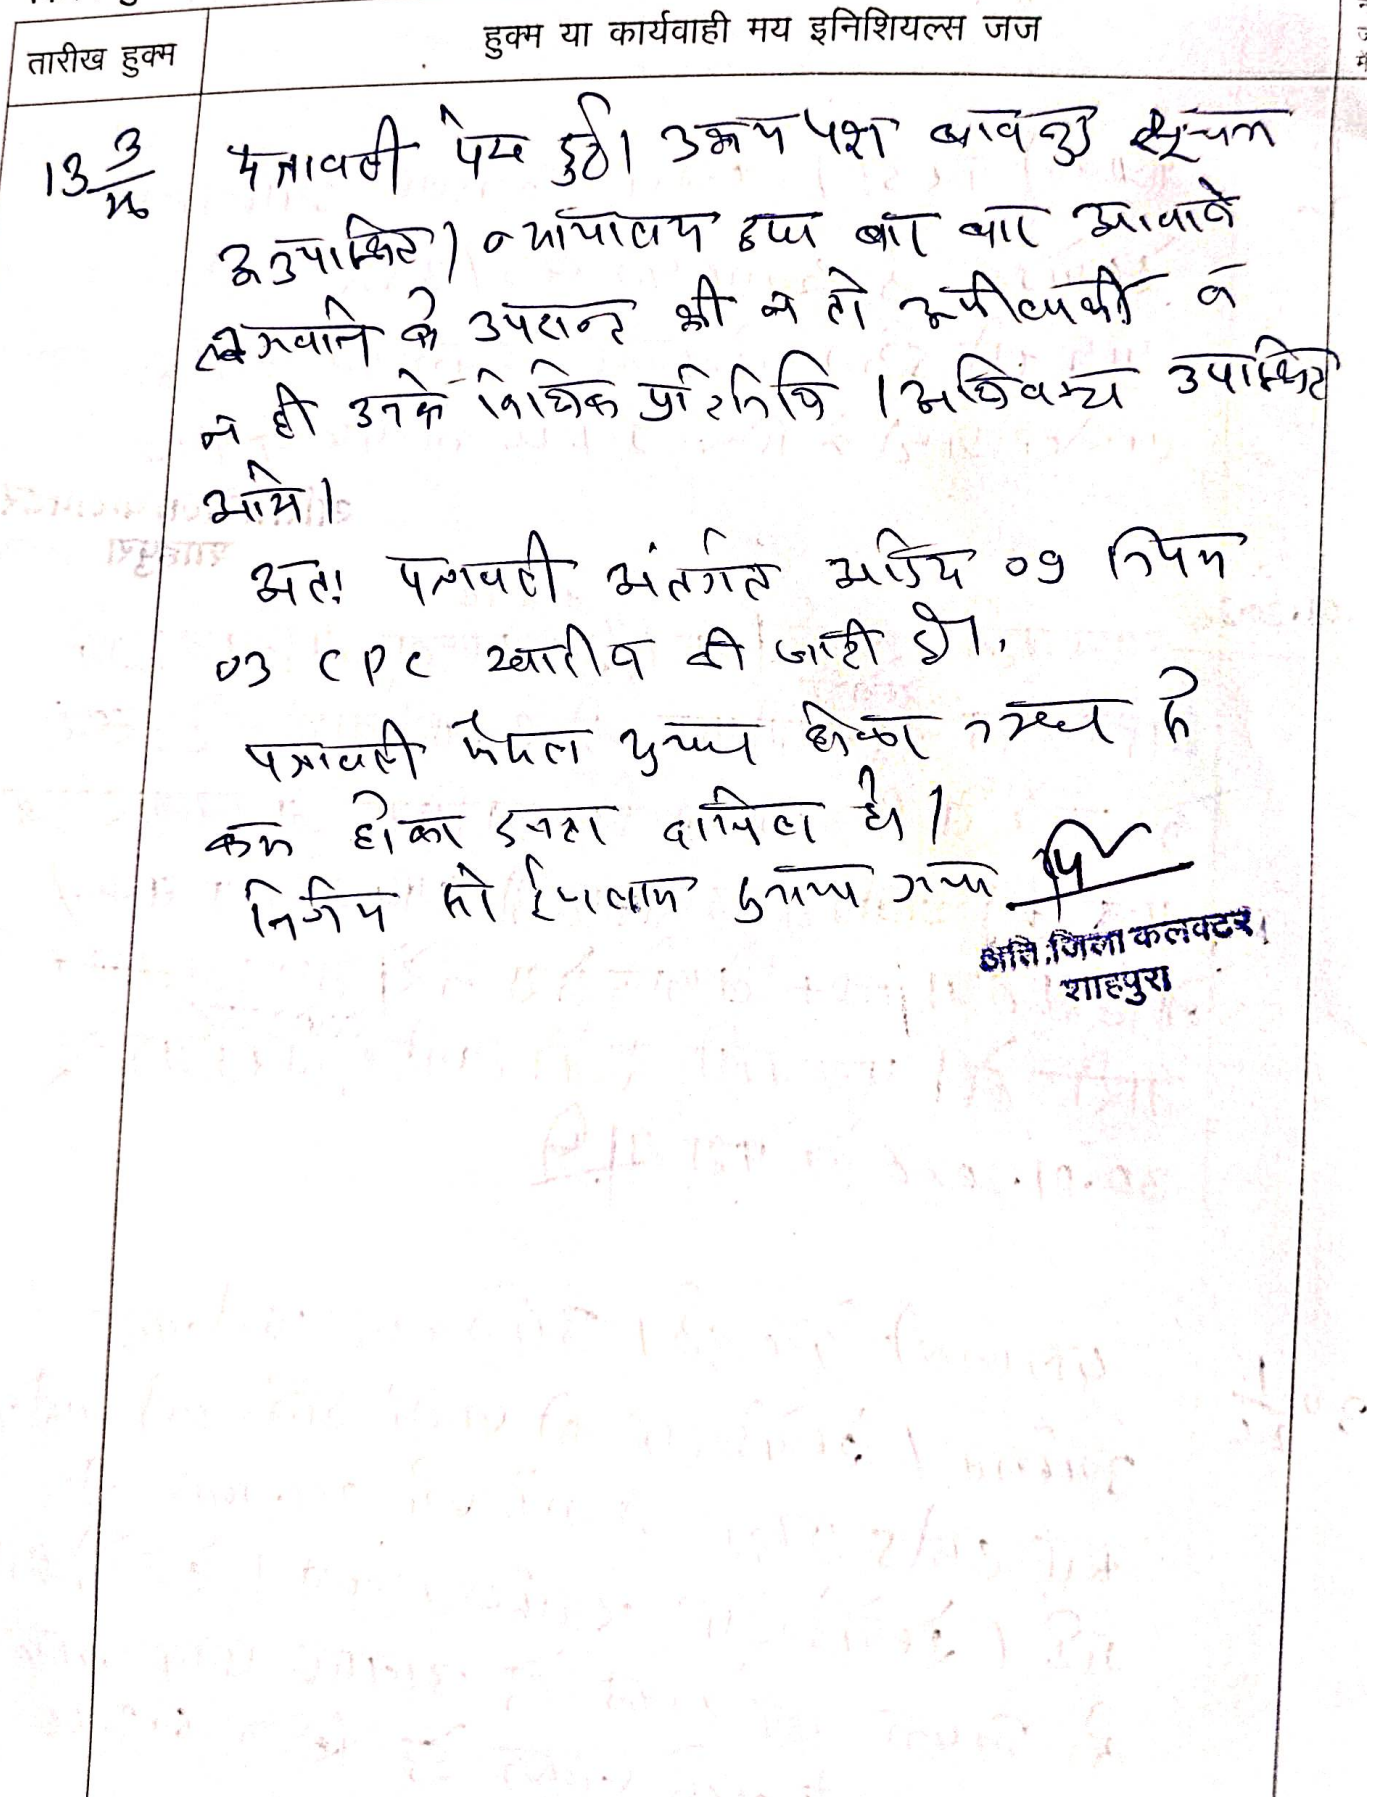 तारीख हुक्म
हुक्म या कार्यवाही मय इनिशियल्स जज
13 3/26
पत्रावली पेश हुई। उभय पक्ष बावजूद सूचना
अनुपस्थित। न्यायालय द्वारा बार बार आवाजे
लगवाने के उपरान्त भी न तो अपीलार्थी व
न ही उनके विधिक प्रतिनिधि / अधिवक्ता उपस्थित
आये।
अतः पत्रावली अंतर्गत आदेश 09 नियम
03 CPC खारीज की जाती है।
पत्रावली फैसल शुमार होकर नम्बर से
कम होकर दाखिल हो।
निर्णय सुनाया गया
अति. जिला कलक्टर
शाहपुरा